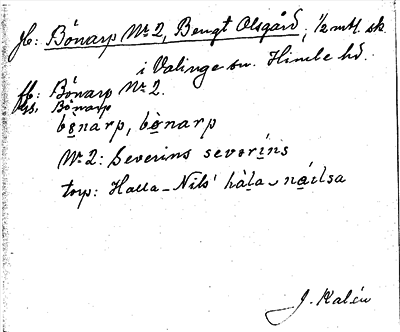 Jb: Bönarp Nr 2, Bengt Olsgård, 1/2 mtl. sk.
i Valinge sn. Himle hd.
ff: Bönarp Nr 2.
Bönarp
bönarp, bònarp
Nr 2: Severins severíns
torp: Halla-Nils' hàla-náilsa
J. Kalén